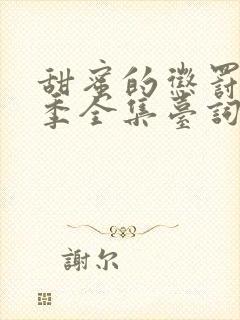 甜蜜的懲罰
季全集臺詞
謝尔